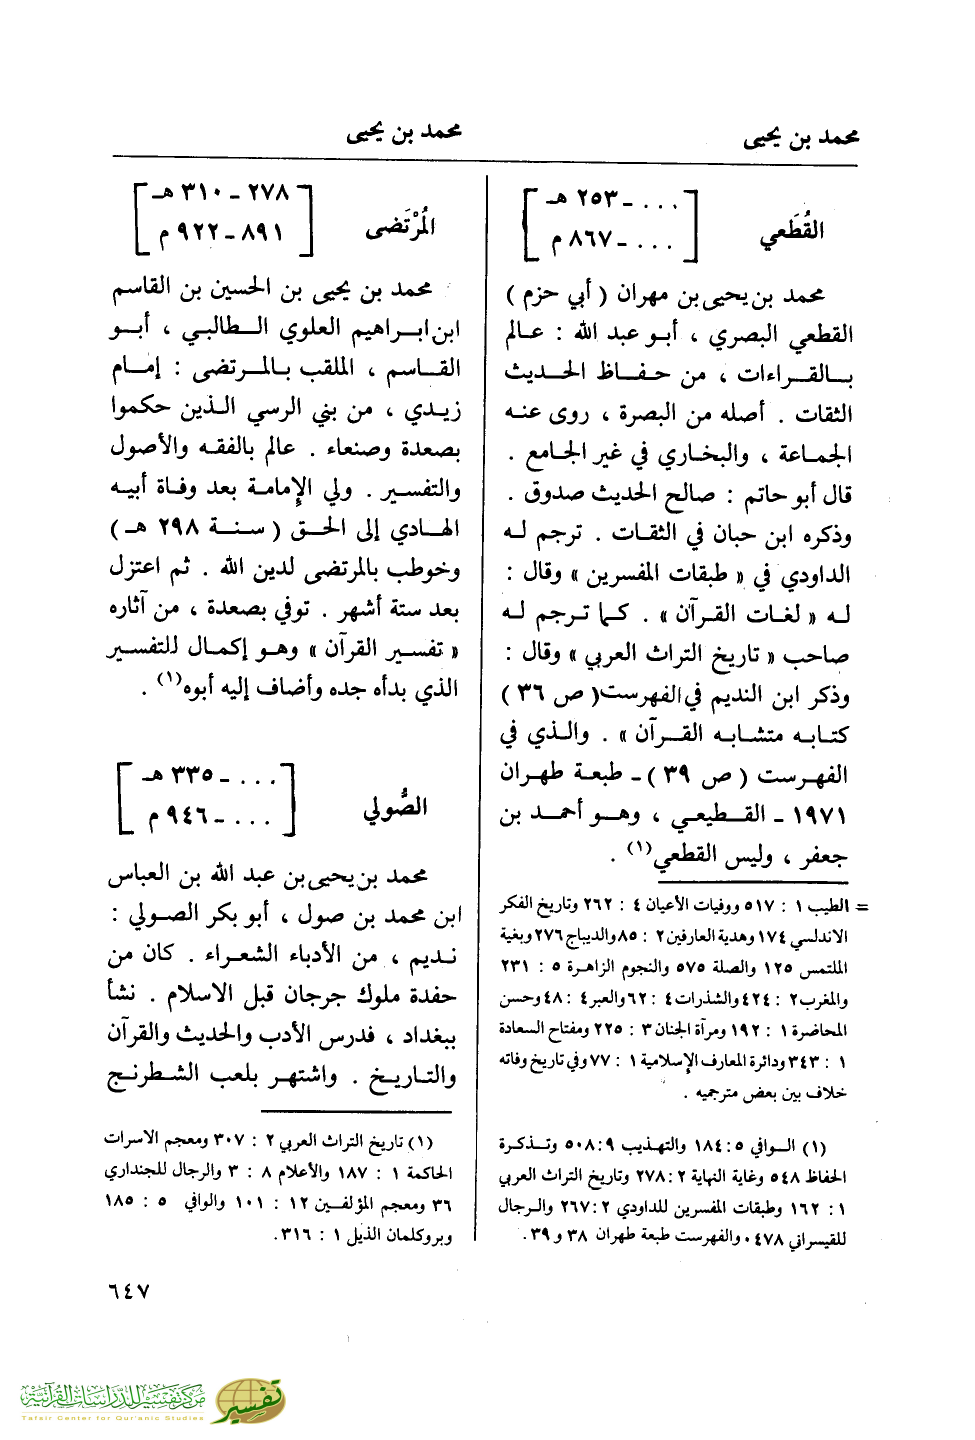 محمد بن يحيى
محمد بن يحيى
القُطَعي
[... ـ ٢٥٣ هـ
... ـ ٨٦٧ م]
محمد بن يحيى بن مهران ( أبي حزم )
القطعي البصري ، أبو عبد الله : عالم
بالقراءات ، من حفاظ الحديث
الثقات . أصله من البصرة ، روى عنه
الجماعة ، والبخاري في غير الجامع .
قال أبو حاتم : صالح الحديث صدوق .
وذكره ابن حبان في الثقات . ترجم له
الداودي في « طبقات المفسرين » وقال :
له « لغات القرآن » . كما ترجم له
صاحب « تاريخ التراث العربي » وقال :
وذكر ابن النديم في الفهرست ( ص ٣٦ )
كتابه متشابه القرآن » . والذي في
الفهرست ( ص ٣٩ ) ـ طبعة طهران
١٩٧١ ـ القطيعي ، وهو أحمد بن
جعفر ، وليس القطعي (١) .
= الطيب ١ : ٥١٧ ووفيات الأعيان ٤ : ٢٦٢ وتاريخ الفكر
الاندلسي ١٧٤ وهدية العارفين ٢ : ٨٥ والديباج ٢٧٦ وبغية
الملتمس ١٢٥ والصلة ٥٧٥ والنجوم الزاهرة ٥ : ٢٣١
والمغرب ٢ : ٤٢٤ والشذرات ٤ : ٦٢ والعبر ٤ : ٤٨ وحسن
المحاضرة ١ : ١٩٢ ومرآة الجنان ٣ : ٢٢٥ ومفتاح السعادة
١ : ٣٤٣ ودائرة المعارف الإسلامية ١ : ٧٧ وفي تاريخ وفاته
خلاف بين بعض مترجميه .
(١) الوافي ٥ : ١٨٤ والتهذيب ٩ : ٥٠٨ وتذكرة
الحفاظ ٥٤٨ وغاية النهاية ٢ : ٢٧٨ وتاريخ التراث العربي
١ : ١٦٢ وطبقات المفسرين للداودي ٢ : ٢٦٧ والرجال
للقيسراني ٤٧٨ . والفهرست طبعة طهران ٣٨ و ٣٩ .
المُرْتَضى
[٢٧٨ ـ ٣١٠ هـ
٨٩١ ـ ٩٢٢ م]
محمد بن يحيى بن الحسين بن القاسم
ابن ابراهيم العلوي الطالبي ، أبو
القاسم ، الملقب بالمرتضى : إمام
زيدي ، من بني الرسي الذين حكموا
بصعدة وصنعاء . عالم بالفقه والأصول
والتفسير . ولي الإمامة بعد وفاة أبيه
الهادي إلى الحق ( سنة ٢٩٨ هـ )
وخوطب بالمرتضى لدين الله . ثم اعتزل
بعد ستة أشهر . توفي بصعدة ، من آثاره
« تفسير القرآن » وهو إكمال للتفسير
الذي بدأه جده وأضاف إليه أبوه (١) .
الصُّولي
[... ـ ٣٣٥ هـ
... ـ ٩٤٦ م]
محمد بن يحيى بن عبد الله بن العباس
ابن محمد بن صول ، أبو بكر الصولي :
نديم ، من الأدباء الشعراء . كان من
حفدة ملوك جرجان قبل الاسلام . نشأ
ببغداد ، فدرس الأدب والحديث والقرآن
والتاريخ . واشتهر بلعب الشطرنج
(١) تاريخ التراث العربي ٢ : ٣٠٧ ومعجم الاسرات
الحاكمة ١ : ١٨٧ والأعلام ٨ : ٣ والرجال للجنداري
٣٦ ومعجم المؤلفين ١٢ : ١٠١ والوافي ٥ : ١٨٥
وبروكلمان الذيل ١ : ٣١٦ .
٦٤٧
مركز تفسير للدراسات القرآنية
Tafsir Center for Qur'anic Studies
تفسير